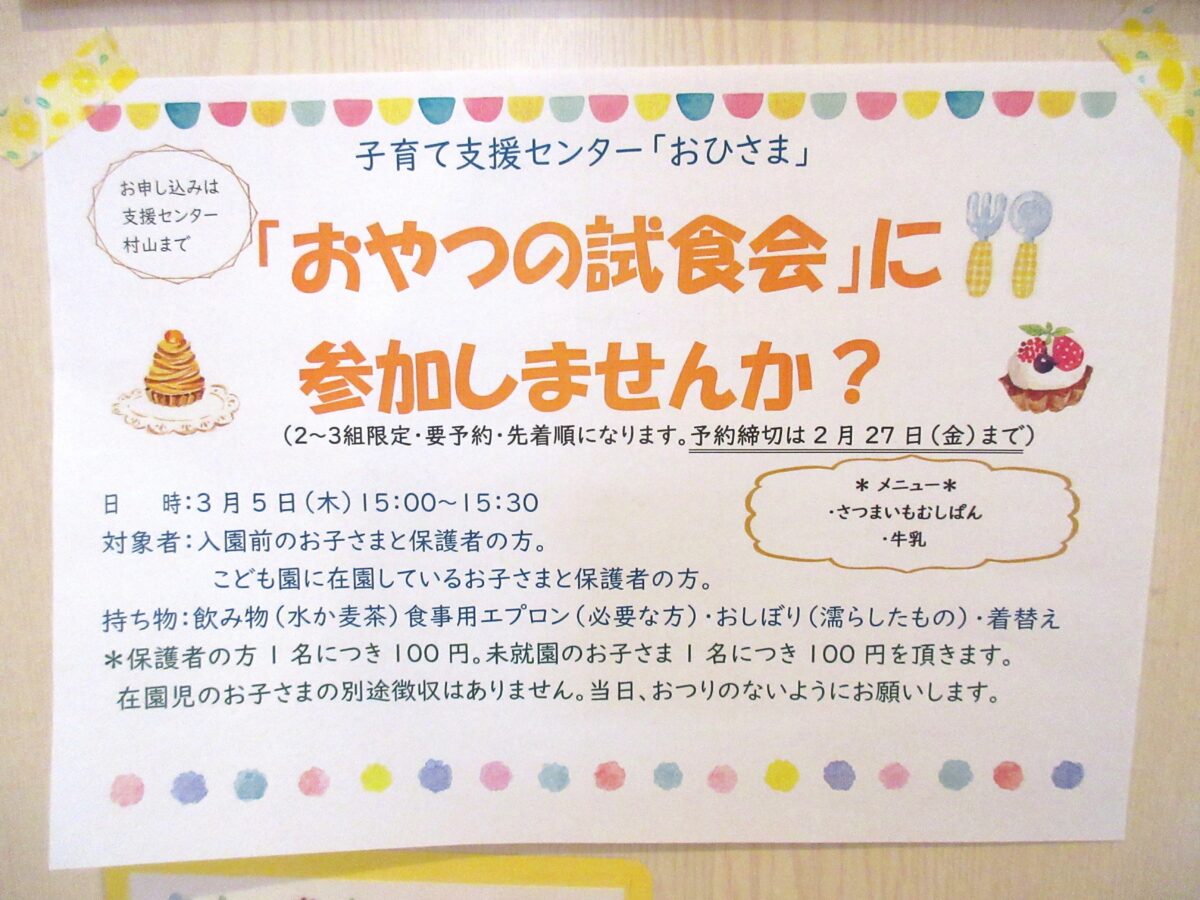 子育て支援センター「おひさま」
お申し込みは
支援センター
村山まで
「おやつの試食会」に
参加しませんか？
（2～3組限定・要予約・先着順になります。予約締切は2月27日（金）まで）
＊メニュー＊
・さつまいもむしぱん
・牛乳
日　時：3月5日（木）15：00～15：30
対象者：入園前のお子さまと保護者の方。
こども園に在園しているお子さまと保護者の方。
持ち物：飲み物（水か麦茶）食事用エプロン（必要な方）・おしぼり（濡らしたもの）・着替え
＊保護者の方1名につき100円。未就園のお子さま1名につき100円を頂きます。
在園児のお子さまの別途徴収はありません。当日、おつりのないようにお願いします。